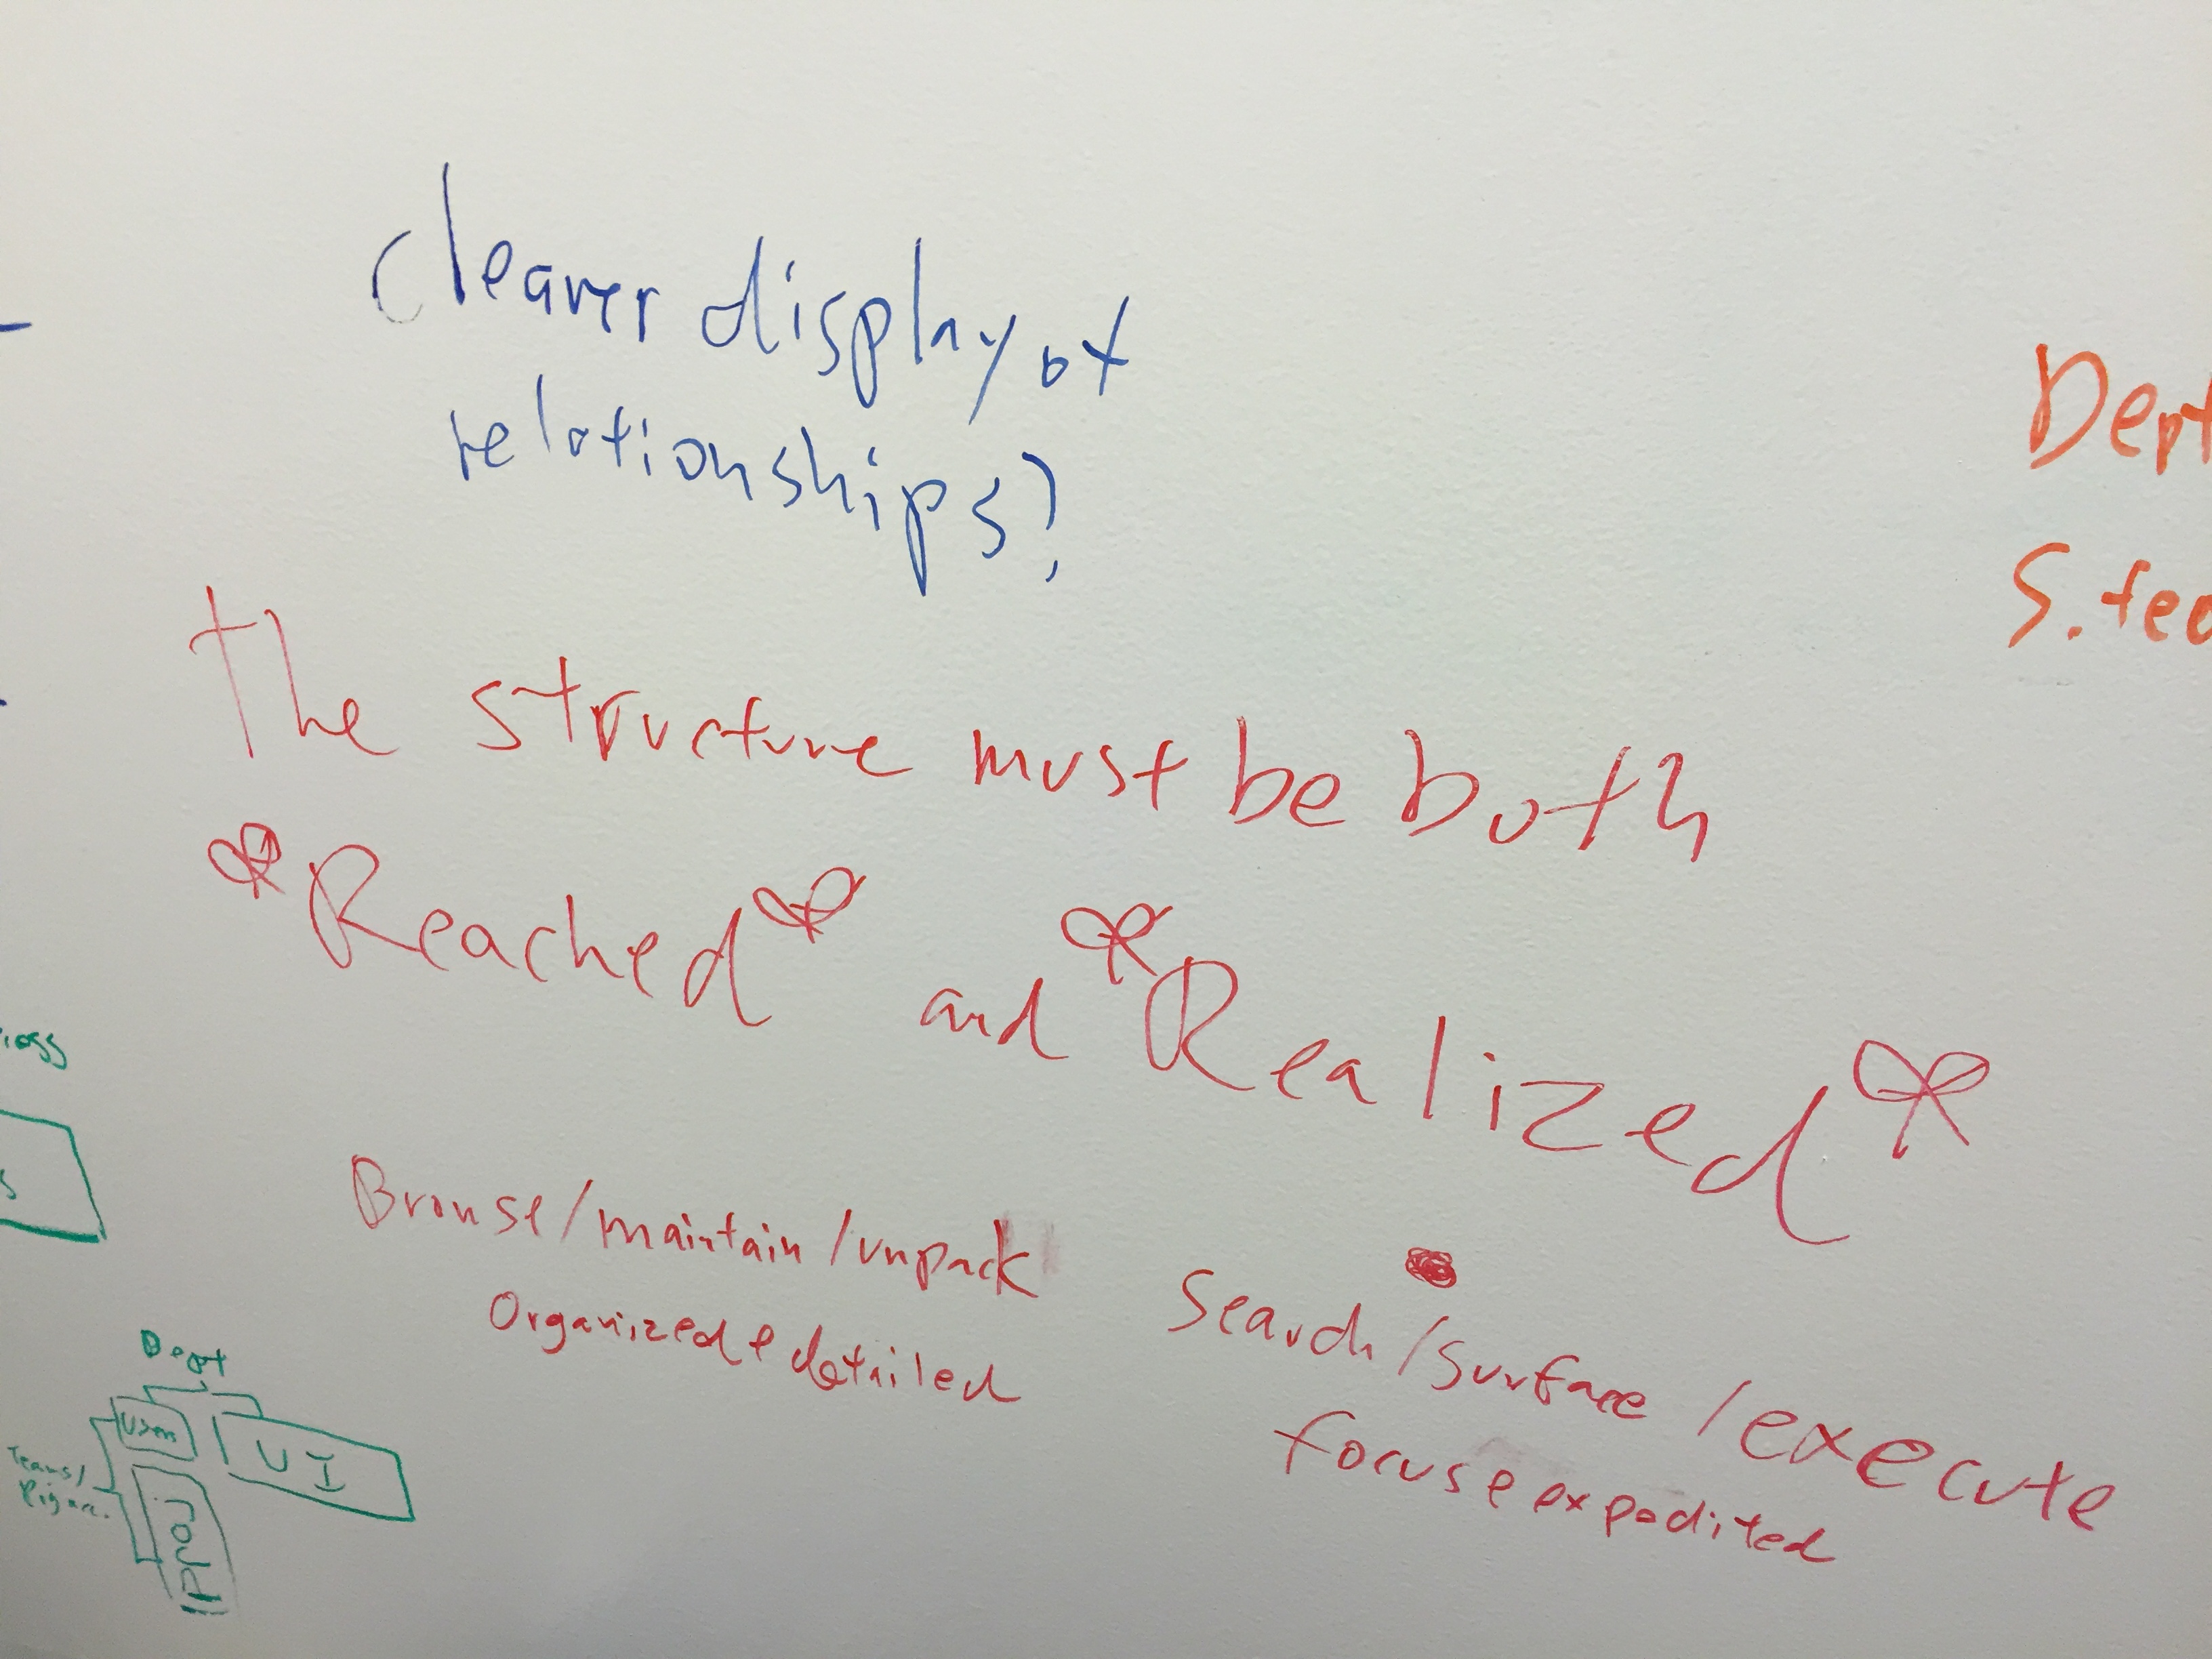 clearer display of
relationships?
Dept
S.tea
The structure must be both
*Reached* and *Realized*
ioss
s
Browse/maintain/unpack
Organized & detailed
Search/surface/execute
focus e expedited
Dept
Users
UI
Teams/
Proj